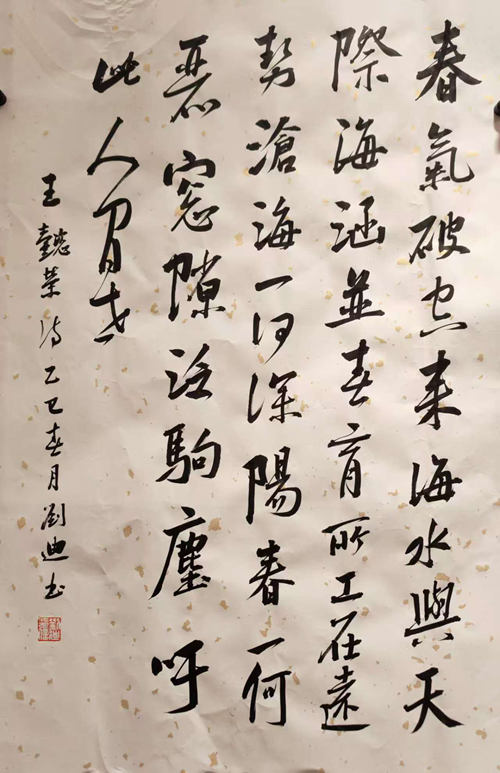 春氣破空来海水與天
際海涵並春育所工在遠
勢滄海一何深陽春一何
惡窓隙注駒塵吁
此人間世
王懿榮詩乙巳春月劉迪书